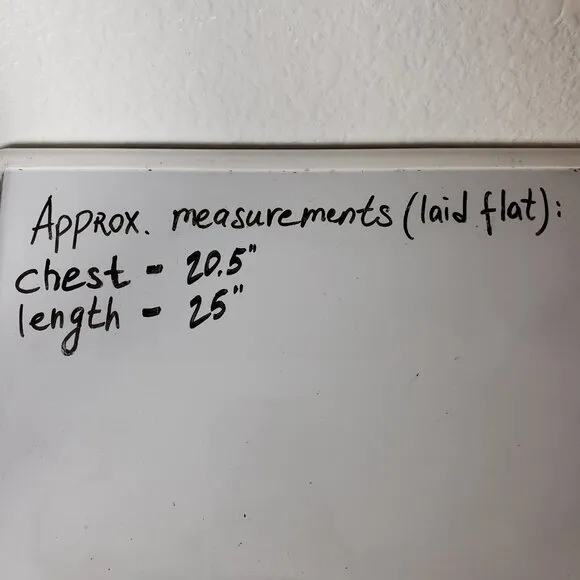 Approx. measurements (laid flat):
chest - 20.5"
length - 25"